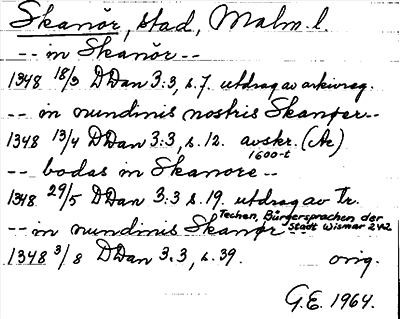 Skanör, stad, Malm. l.
-- in Skanör --
1348 18/3 DDan 3:3, s. 7. utdrag av arkivreg.
-- in nundinis nostris Skanør --
1348 13/4 DDan 3:3, s. 12. avskr. (Ae)
1600-t
-- bodas in Skanore --
1348 29/5 DDan 3:3 s. 19. utdrag av Tr.
Techen, Bürgersprachen der
Stadt Wismar 242
-- in nundinis Skanør --
1348 3/8 DDan 3:3, s. 39. orig.
G.E. 1964.